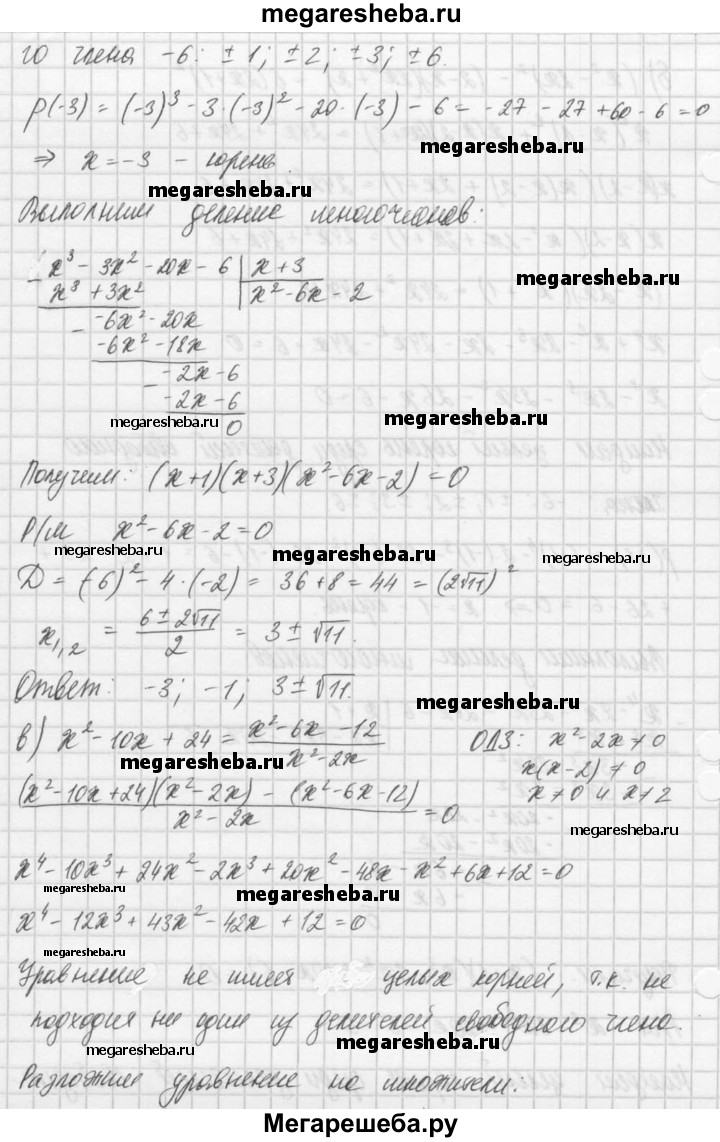 megaresheba.ru
го члена -6: ± 1; ± 2; ± 3; ± 6.
p(-3) = (-3)³ - 3·(-3)² - 20·(-3) - 6 = -27 - 27 + 60 - 6 = 0
megaresheba.ru
⇒ x = -3 - корень.
megaresheba.ru
Выполним деление многочленов:
x³ - 3x² - 20x - 6 | x + 3
megaresheba.ru
x³ + 3x² | x² - 6x - 2
-6x² - 20x
-6x² - 18x
-2x - 6
-2x - 6
megaresheba.ru
megaresheba.ru
0
Получим: (x+1)(x+3)(x² - 6x - 2) = 0
Р/м x² - 6x - 2 = 0
megaresheba.ru
megaresheba.ru
megaresheba.ru
D = (-6)² - 4·(-2) = 36 + 8 = 44 = (2√11)²
x₁,₂ = (6 ± 2√11)/2 = 3 ± √11.
Ответ: -3; -1; 3 ± √11.
megaresheba.ru
в) x² - 10x + 24 = (x² - 6x - 12)/(x² - 2x) ОДЗ: x² - 2x ≠ 0
megaresheba.ru
x(x-2) ≠ 0
x ≠ 0 и x ≠ 2
((x² - 10x + 24)(x² - 2x) - (x² - 6x - 12))/(x² - 2x) = 0
megaresheba.ru
x⁴ - 10x³ + 24x² - 2x³ + 20x² - 48x - x² + 6x + 12 = 0
megaresheba.ru
megaresheba.ru
x⁴ - 12x³ + 43x² - 42x + 12 = 0
megaresheba.ru
megaresheba.ru
Уравнение не имеет целых корней, т.к. не
подходит ни один из делителей свободного члена.
megaresheba.ru
megaresheba.ru
Разложим уравнение на множители:
megaresheba.ru
Мегарешеба.ру